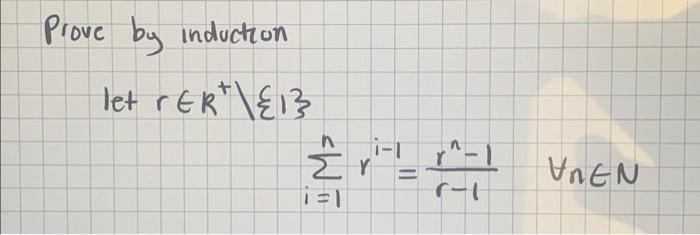 Prove by induction
let r ∈ R⁺\{1}
∑ⁿᵢ₌₁ rⁱ⁻¹ = (rⁿ-1)/(r-1) ∀n∈N